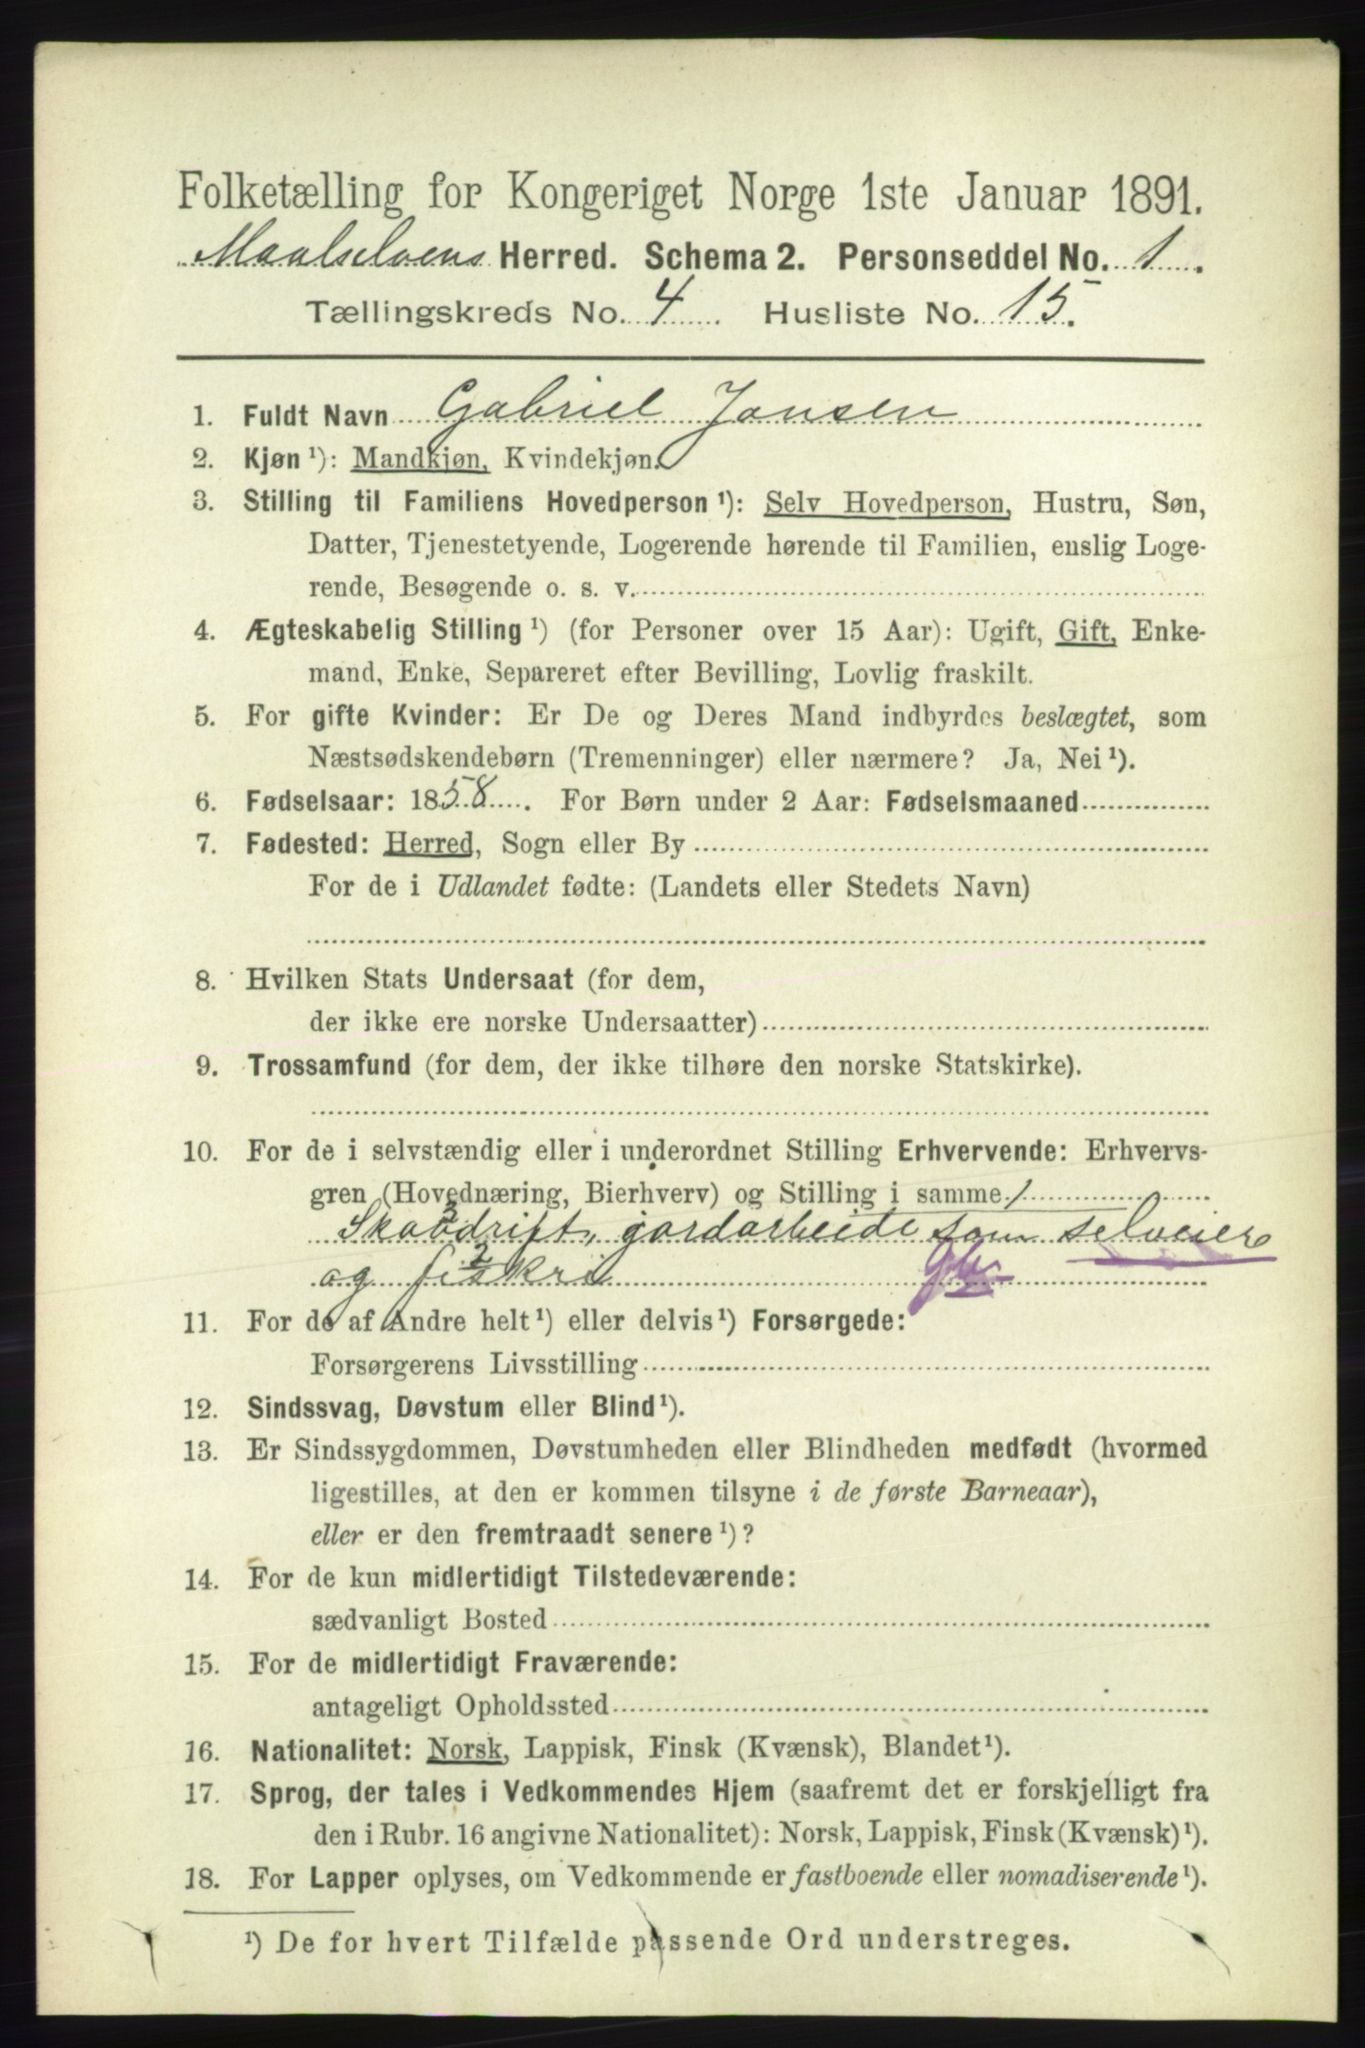 Folketælling for Kongeriget Norge 1ste Januar 1891.
Maalselvens Herred. Schema 2. Personseddel No. 1.
Tællingskreds No. 4 Husliste No. 15.
1. Fuldt Navn Gabriel Jansen
2. Kjøn ¹): Mandkjøn, Kvindekjøn.
3. Stilling til Familiens Hovedperson ¹): Selv Hovedperson, Hustru, Søn,
Datter, Tjenestetyende, Logerende hørende til Familien, enslig Loge-
rende, Besøgende o. s. v.
4. Ægteskabelig Stilling ¹) (for Personer over 15 Aar): Ugift, Gift, Enke-
mand, Enke, Separeret efter Bevilling, Lovlig fraskilt.
5. For gifte Kvinder: Er De og Deres Mand indbyrdes beslægtet, som
Næstsødskendebørn (Tremenninger) eller nærmere? Ja, Nei ¹).
6. Fødselsaar: 1858. For Børn under 2 Aar: Fødselsmaaned
7. Fødested: Herred, Sogn eller By
For de i Udlandet fødte: (Landets eller Stedets Navn)
8. Hvilken Stats Undersaat (for dem,
der ikke ere norske Undersaatter)
9. Trossamfund (for dem, der ikke tilhøre den norske Statskirke).
10. For de i selvstændig eller i underordnet Stilling Erhvervende: Erhvervs-
gren (Hovednæring, Bierhverv) og Stilling i samme 1
2
Skovdrift, gardarbeide som selveier
2
og fiskri Gb
11. For de af Andre helt ¹) eller delvis ¹) Forsørgede:
Forsørgerens Livsstilling
12. Sindssvag, Døvstum eller Blind ¹).
13. Er Sindssygdommen, Døvstumheden eller Blindheden medfødt (hvormed
ligestilles, at den er kommen tilsyne i de første Barneaar),
eller er den fremtraadt senere ¹)?
14. For de kun midlertidigt Tilstedeværende:
sædvanligt Bosted
15. For de midlertidigt Fraværende:
antageligt Opholdssted
16. Nationalitet: Norsk, Lappisk, Finsk (Kvænsk), Blandet ¹).
17. Sprog, der tales i Vedkommendes Hjem (saafremt det er forskjelligt fra
den i Rubr. 16 angivne Nationalitet): Norsk, Lappisk, Finsk (Kvænsk) ¹).
18. For Lapper oplyses, om Vedkommende er fastboende eller nomadiserende ¹).
¹) De for hvert Tilfælde passende Ord understreges.